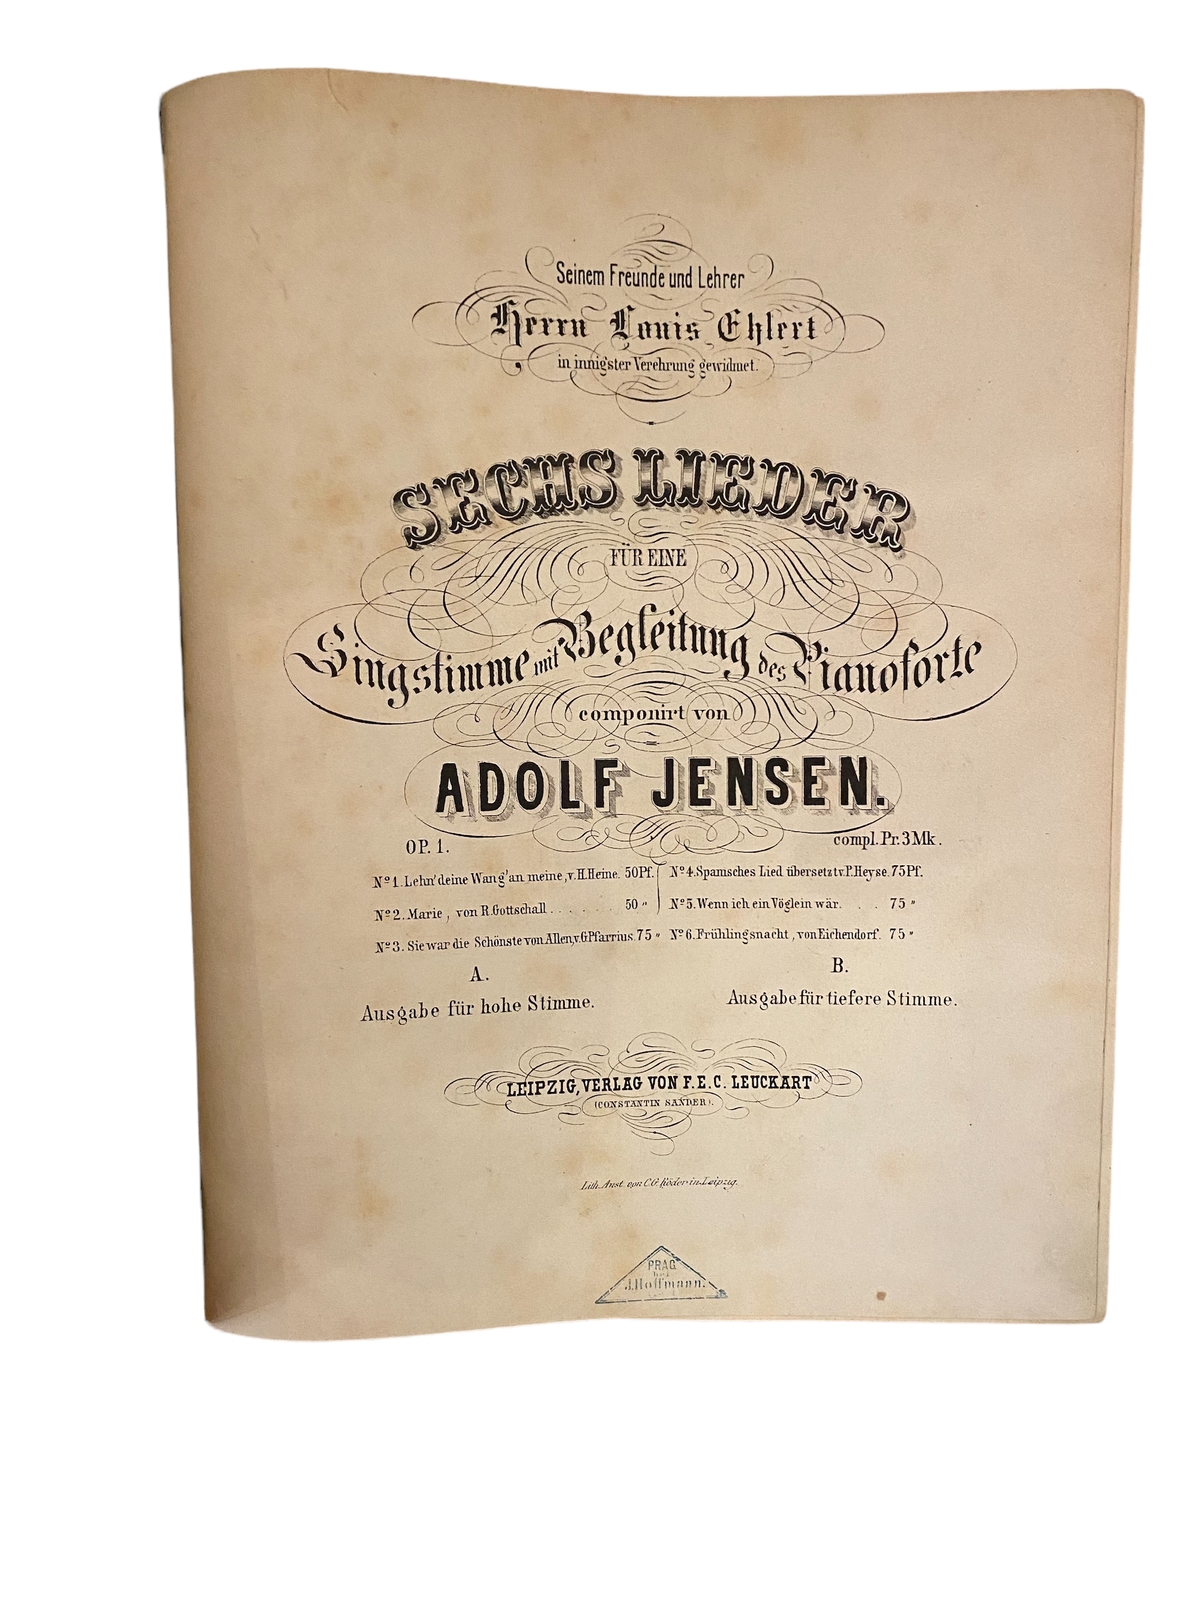 Seinem Freunde und Lehrer
Herrn Louis Ehlert
in innigster Verehrung gewidmet.
SECHS LIEDER
FÜR EINE
Singstimme mit Begleitung des Pianoforte
componirt von
ADOLF JENSEN.
OP. 1.
compl. Pr. 3 Mk.
No 1. Lehn' deine Wang' an meine, v. H. Heine. 50 Pf.
No 2. Marie, von R. Gottschall . . . . . . 50 "
No 3. Sie war die Schönste von Allen, v. G. Pfarrius. 75 "
No 4. Spanisches Lied übersetzt v. P. Heyse. 75 Pf.
No 5. Wenn ich ein Vöglein wär. . . . 75 "
No 6. Frühlingsnacht, von Eichendorf. 75 "
A.
Ausgabe für hohe Stimme.
B.
Ausgabe für tiefere Stimme.
LEIPZIG, VERLAG VON F. E. C. LEUCKART
(CONSTANTIN SANDER).
Lith. Anst. von C. G. Röder in Leipzig.
PRAG
bei
J. Hoffmann.